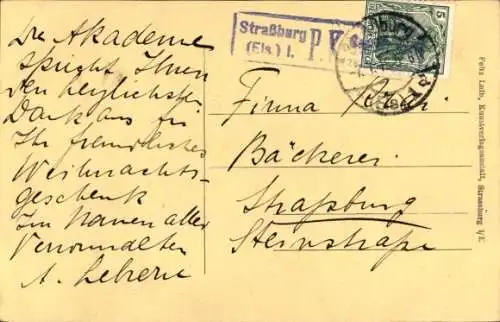 Die Akademie
spricht Ihnen
den herzlichsten
Dank aus für
Ihr freundliches
Weihnachts-
geschenk
Im Namen aller
Verwundeten
A.
Straßburg
(Els.) 1.
P.K.
5
Firma
Bäckerei
Straßburg
Steinstraße
Felix Luib, Kunstverlagsanstalt, Strassburg i/E.